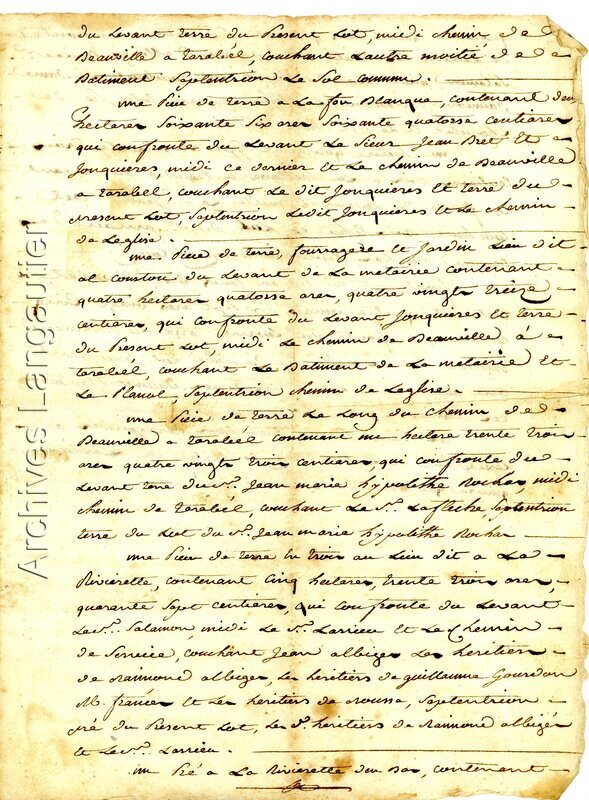 du Levant terre du Present Lot, midi chemin de
Beauville a tarabél, couchant L'autre moitié de
Batiment Septentrion Le Sol commun.
une Piece de terre a La fon Blanque, contenant deux
hectares Soixante Six ares Soixante quatorse centiares
qui confronte du Levant Le Sieur Jean Bret Et
Jonquieres, midi ce dernier et Le chemin de Beauville
a tarabel, couchant Le dit Jonquieres Et terre du
present Lot, Septentrion Ledit Jonquieres et Le chemin
de Leglise.
une Piece de terre, fourragere et Jardin Lieu dit
al coustou du Levant de La metairie contenant
quatre hectares quatorse ares, quatre vingt treize
centiares, qui confronte du Levant Jonquieres et terre
du Present Lot, midi Le chemin de Beauville á
tarabél, couchant Le Batiment de La metairie Et
Le Planol, Septentrion chemin de Leglise.
une Piece de terre Le Long du chemin de
Beauville a tarabél contenant un hectare trente trois
ares quatre vingt trois centiares, qui confronte du
Levant terre du Sr. Jean marie hypolithe Rochas, midi
chemin de tarabél, couchant Le Sr. Lafleche, Septentrion
terre du Lot du Sr. Jean marie hypolithe Rochas
une Piece de terre En trois au Lieu dit a La
Rivierette, contenant Cinq hectares, trente trois ares,
quarante Sept centiares, qui confronte du Levant
Le Sr. Salamon, midi Le Sr. Larrieu Et Le Chemin
de Service, couchant Jean albiges Les heritiers
de Raimond albiges, Les heritiers de guillaume Gourdon
M. frances Et Les heritiers de Rousse, Septentrion
pré du Present Lot, Les d. heritiers de Raimond albigés
et Le Sr. Larrieu.
un Pré a La Rivierette du Bas, contenant
Archives Langautier